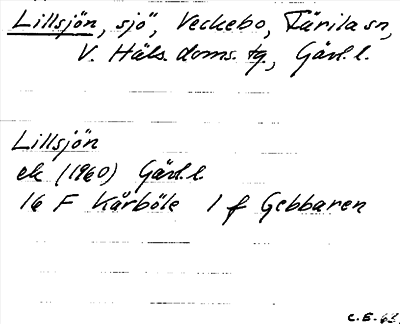 Lillsjön, sjö, Veckebo, Färila sn,
V. Häls. doms. tg, Gävl. l.
Lillsjön
ek (1960) Gävl. l.
16 F Kårböle 1 f Gebbaren
C.E. 63.